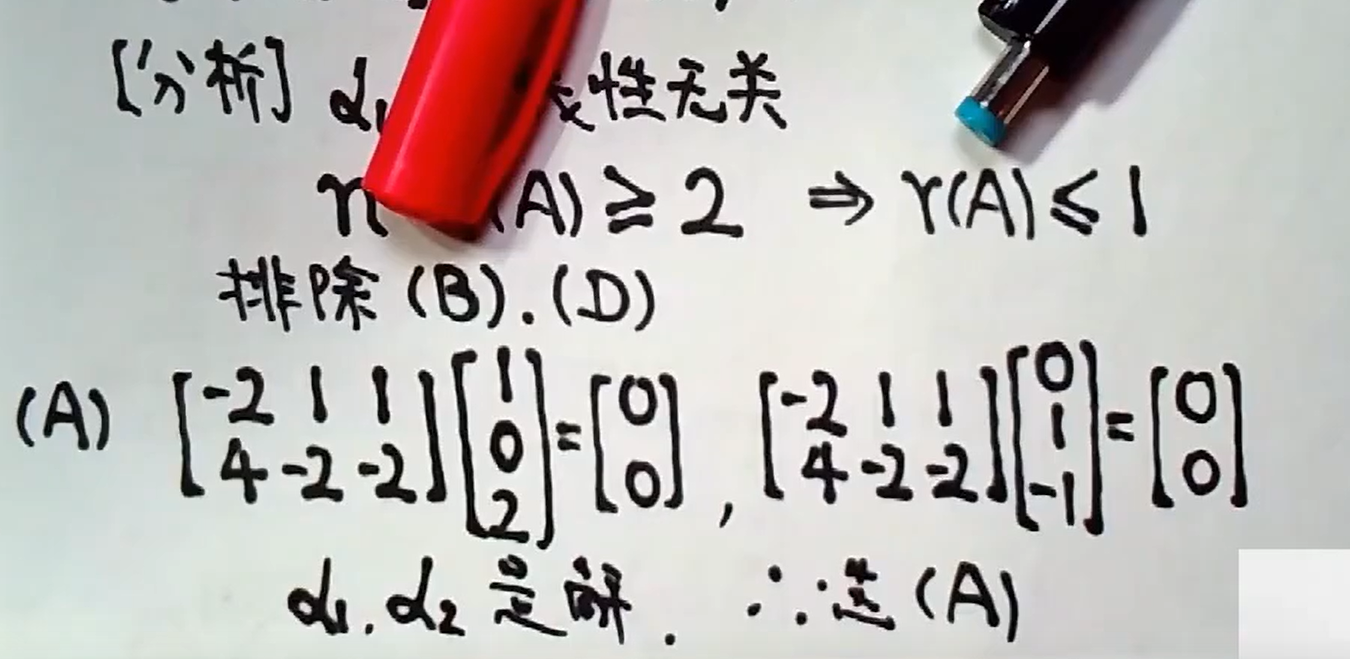 [分析] α₁ 性无关
n (A) ≥ 2 ⇒ r(A) ≤ 1
排除 (B). (D)
(A) [-2 1 1; 4 -2 -2] [1; 0; 2] = [0; 0], [-2 1 1; 4 -2 -2] [0; 1; -1] = [0; 0]
α₁. α₂ 是解. ∴ 选 (A)